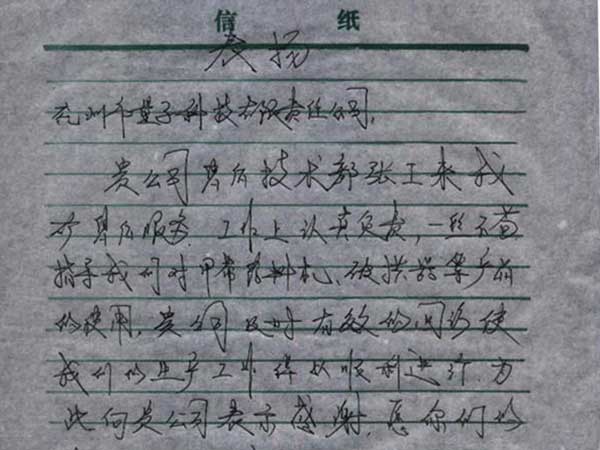 信 纸
表扬
兖州市量子科技有限责任公司,
贵公司售后技术部张工来我
矿售后服务.工作上认真负责,一丝不苟
指导我们对甲带给料机、破拱器等产品
的使用.贵公司及时有效的回访使
我们的生产工作得以顺利进行.为
此向贵公司表示感谢.愿你们的